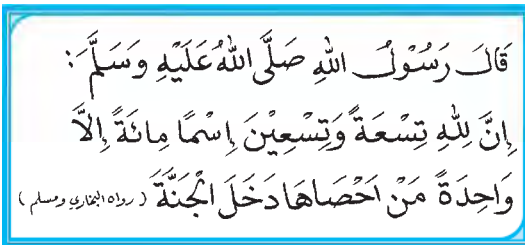 قَالَ رَسُوْلُ اللهِ صَلَّى اللهُ عَلَيْهِ وَسَلَّمَ:
إِنَّ لِلّٰهِ تِسْعَةً وَتِسْعِيْنَ إِسْمًا مِائَةً إِلَّا
وَاحِدَةً مَنْ اَحْصَاهَا دَخَلَ الْجَنَّةَ (رواه البخاري ومسلم)